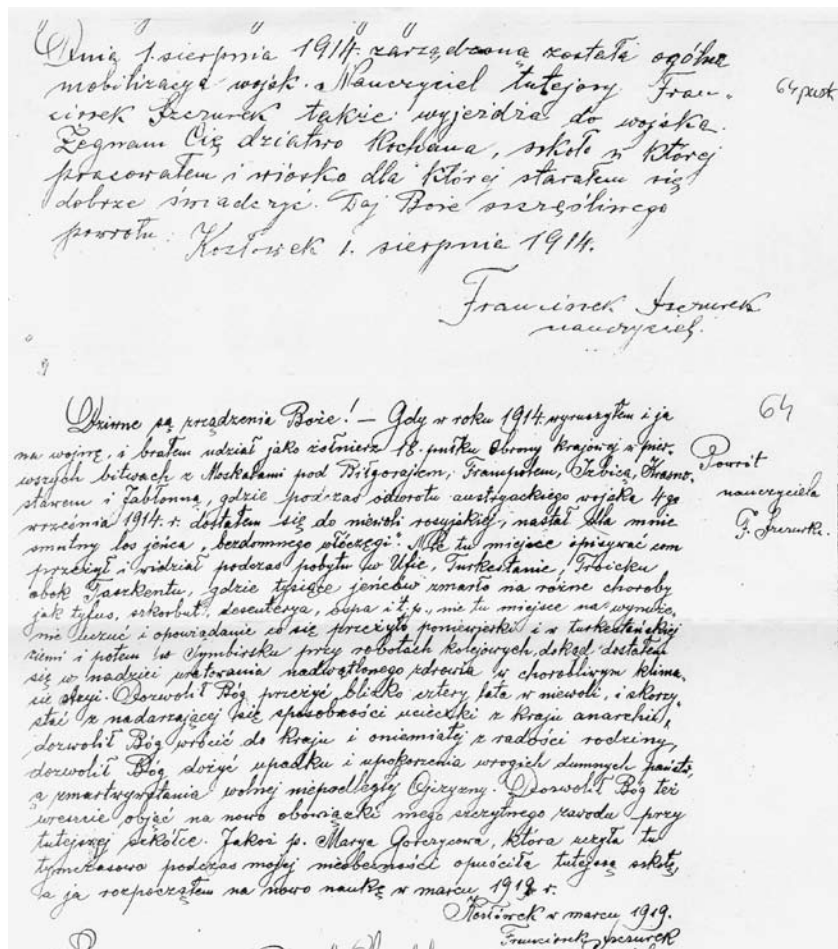 Dnia 1. sierpnia 1914. zarządzoną została ogólna
mobilizacya wojsk. Nauczyciel tutejszy Fran-
ciszek Szczurek także wyjeżdża do wojska.
Żegnam Cię dziatwo kochana, szkoło w której
pracowałem i wiosko dla której starałem się
dobrze świadczyć. Daj Boże szczęśliwego
powrotu. Kozłówek 1. sierpnia 1914.
Franciszek Szczurek
nauczyciel.
64
Dziwne są zrządzenia Boże! – Gdy w roku 1914. wyruszyłem i ja
na wojnę, i brałem udział jako żołnierz 18. pułku Obrony krajowej w pier-
wszych bitwach z Moskalami pod Biłgorajem, Frampolem, Izbicą, Krasno-
stawem i Jabłonną, gdzie podczas odwrotu austryackiego wojska 4go
września 1914. r. dostałem się do niewoli rosyjskiej, nastał dla mnie
smutny los jeńca „bezdomnego włóczęgi". Nie tu miejsce opisywać com
przeżył i widział podczas pobytu w Ufie, Turkestanie, Troicku
obok Taszkentu, gdzie tysiące jeńców zmarło na różne choroby
jak tyfus, szkorbut, desenterya, ospa i t. p., nie tu miejsce na wynurze-
nie uczuć i opowiadanie co się przeżyło poniewierki i w turkestańskiej
ziemi i potem w Symbirsku przy robotach kolejowych, dokąd dostałem
się w nadziei uratowania nadwątlonego zdrowia w chorobliwym klima-
cie Azyi. Dozwolił Bóg przeżyć blizko cztery lata w niewoli, i skorzy-
stać z nadarzającej się sposobności ucieczki z kraju anarchii,
dozwolił Bóg wrócić do kraju i oniemiałej z radości rodziny,
dozwolił Bóg dożyć upadku i upokorzenia wrogich dumnych państw,
a zmartwychwstania wolnej niepodległej Ojczyzny. Dozwolił Bóg też
wreszcie objąć na nowo obowiązki mego szczytnego zawodu przy
tutejszej szkółce. Jakoż p. Marya Gorczycowa, która uczyła tu
tymczasowo podczas mojej nieobecności opuściła tutejszą szkołę,
a ja rozpocząłem na nowo naukę w marcu 1919 r.
Kozłówek w marcu 1919.
Franciszek Szczurek
64
Powrót
nauczyciela
F. Szczurka.